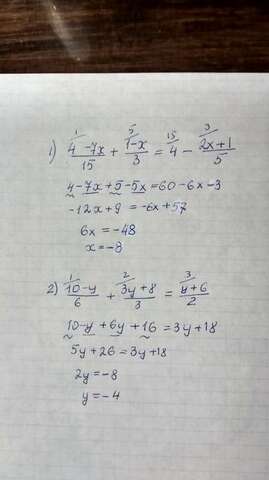 1) ¹⁄(4-7x)/15 + ⁵⁄(1-x)/3 = ¹⁵⁄4 - ³⁄(2x+1)/5
4-7x+5-5x=60-6x-3
-12x+9=-6x+57
6x=-48
x=-8
2) ¹⁄(10-y)/6 + ²⁄(3y+8)/3 = ³⁄(y+6)/2
10-y+6y+16=3y+18
5y+26=3y+18
2y=-8
y=-4